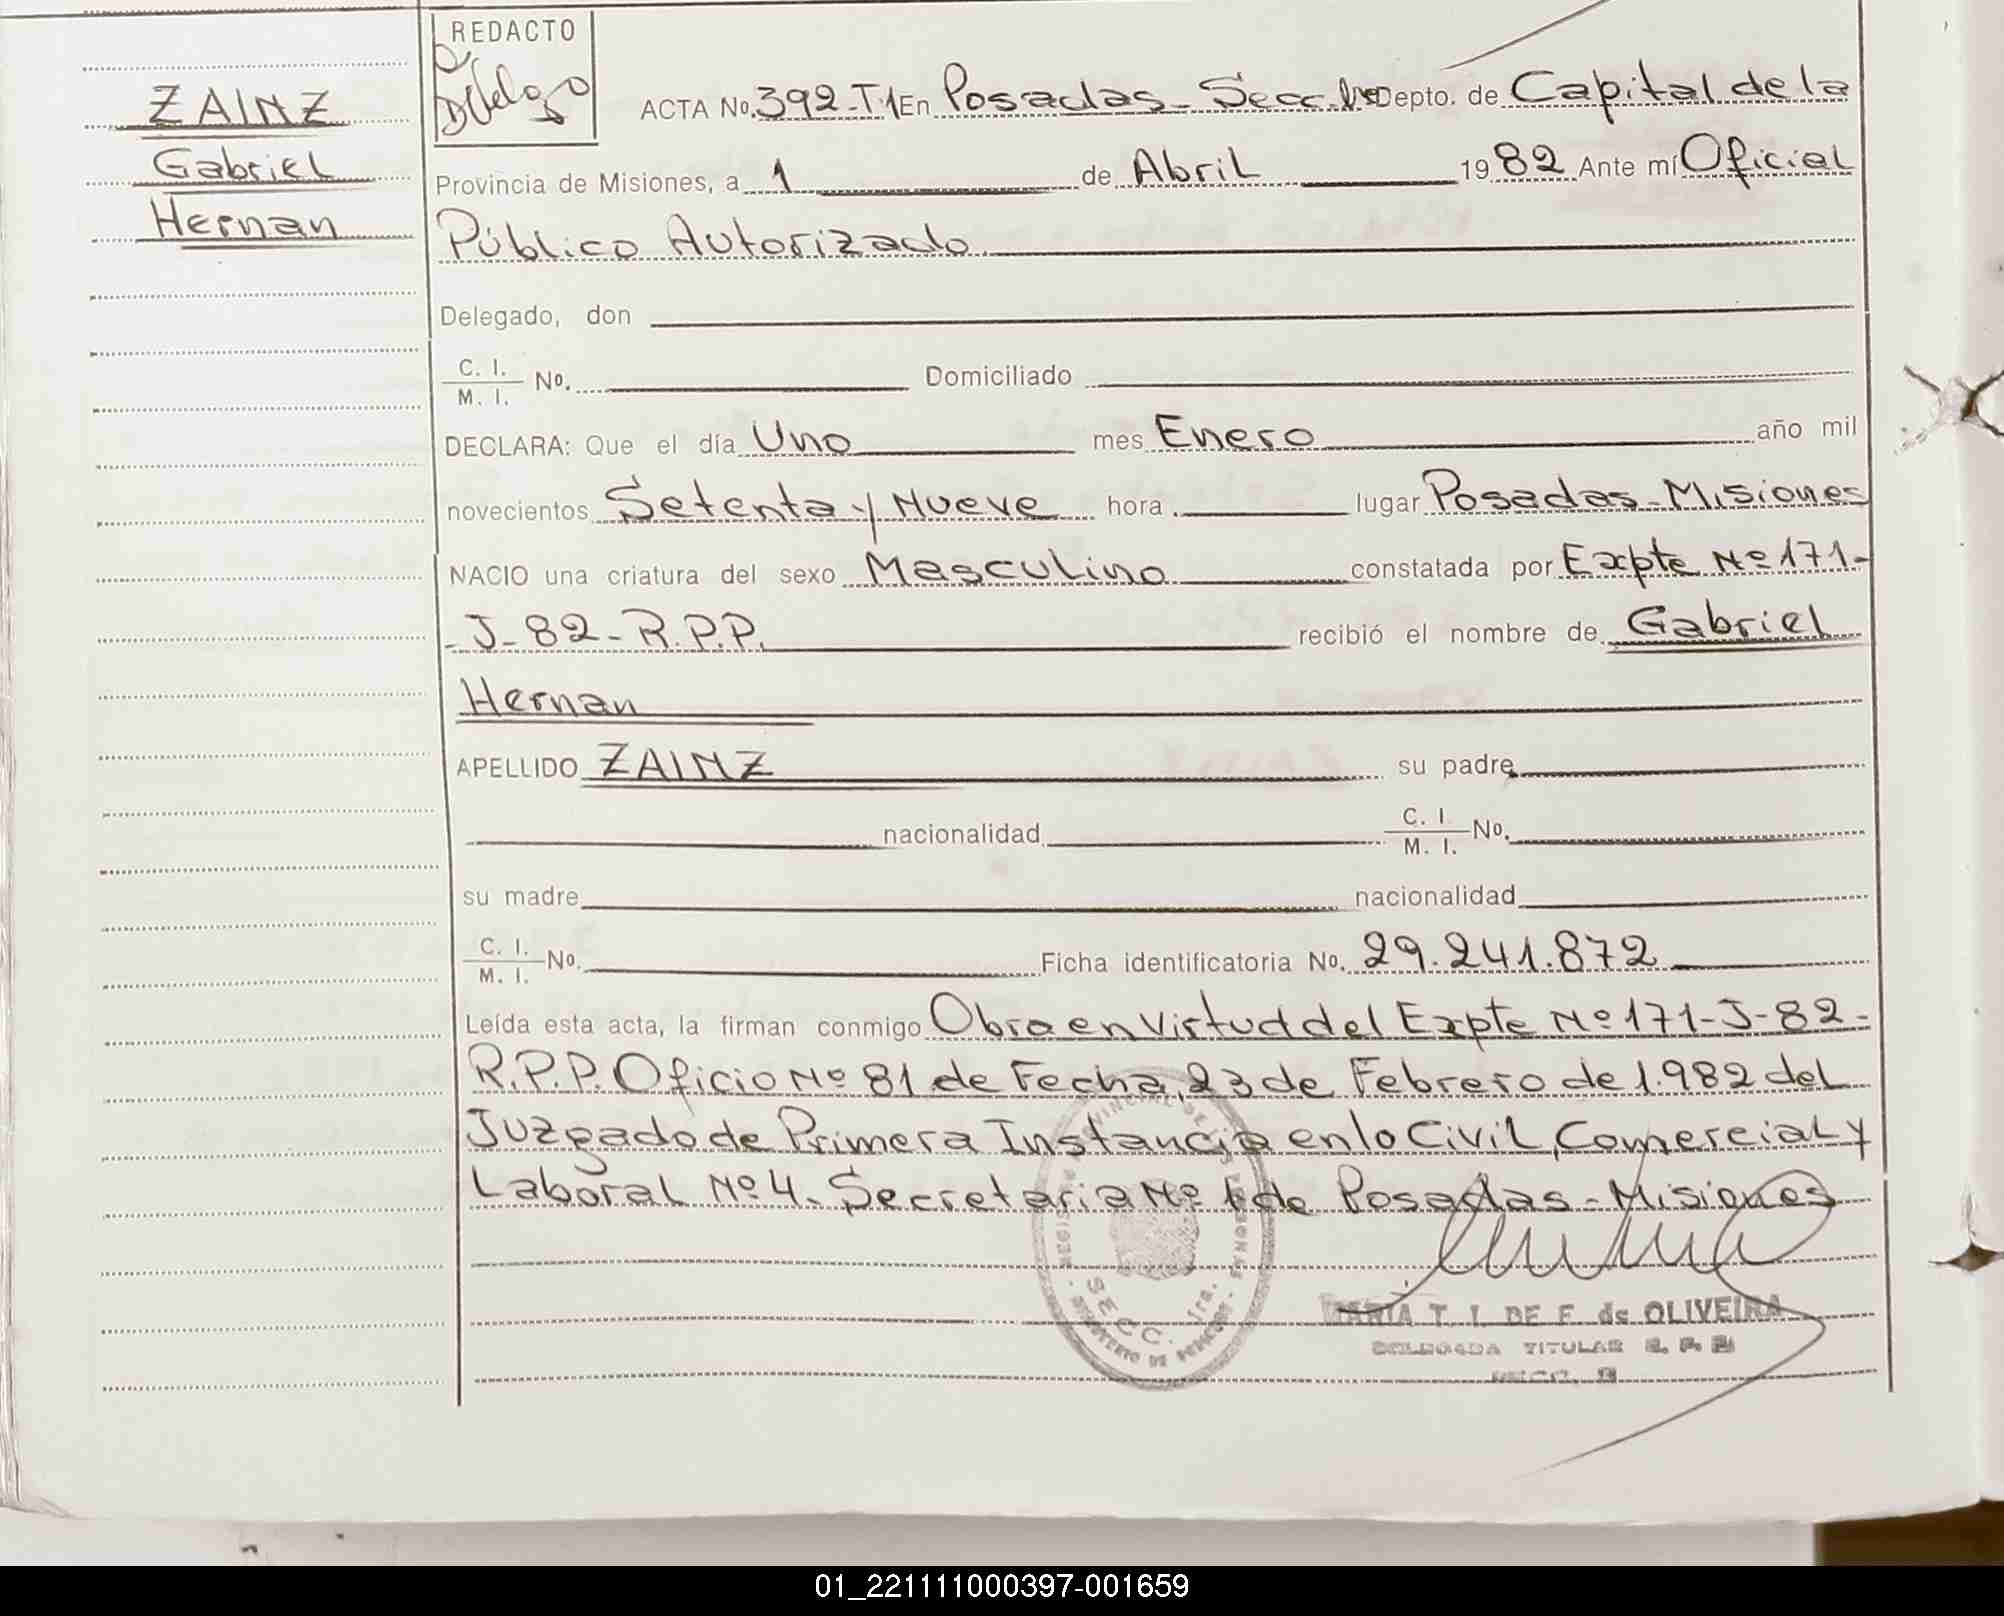 REDACTO
ZAINZ
Gabriel
Hernan
ACTA No. 392-T.1 En Posadas - Secc. 1ra Depto. de Capital de la
Provincia de Misiones, a 1 de Abril 1982 Ante mí Oficial
Público Autorizado.
Delegado, don
C. I.
M. I. No. Domiciliado
DECLARA: Que el día Uno mes Enero año mil
novecientos Setenta y Nueve hora lugar Posadas - Misiones
NACIO una criatura del sexo Masculino constatada por Expte Nº 171-
- J - 82 - R.P.P. recibió el nombre de Gabriel
Hernan
APELLIDO ZAINZ su padre
nacionalidad C. I. M. I. No.
su madre nacionalidad
C. I.
M. I. No. Ficha identificatoria No. 29.241.872
Leída esta acta, la firman conmigo Obra en Virtud del Expte Nº 171-J-82-
R.P.P. Oficio Nº 81 de Fecha, 23 de Febrero de 1.982 del
Juzgado de Primera Instancia en lo Civil, Comercial y
Laboral Nº 4. Secretaria Nº 1 de Posadas - Misiones
SECC. 1ra.
MARIA T. I. DE F. de OLIVEIRA
DELEGADA TITULAR R. P. P.
01_221111000397-001659